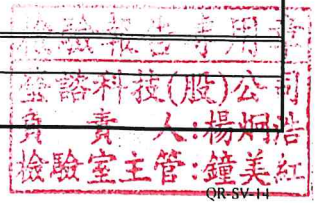 檢驗報告專用章
鎣諮科技(股)公司
負責人:楊炯浩
檢驗室主管:鐘美紅
QR-SV-14